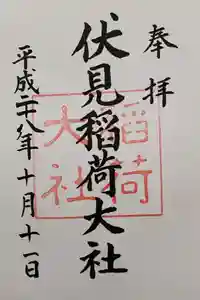 奉拝
伏見稲荷大社
平成二十八年十月十一日
稲荷
大社